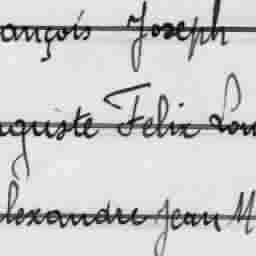 ançois Joseph
uguste Felix Lou
lexandre Jean M